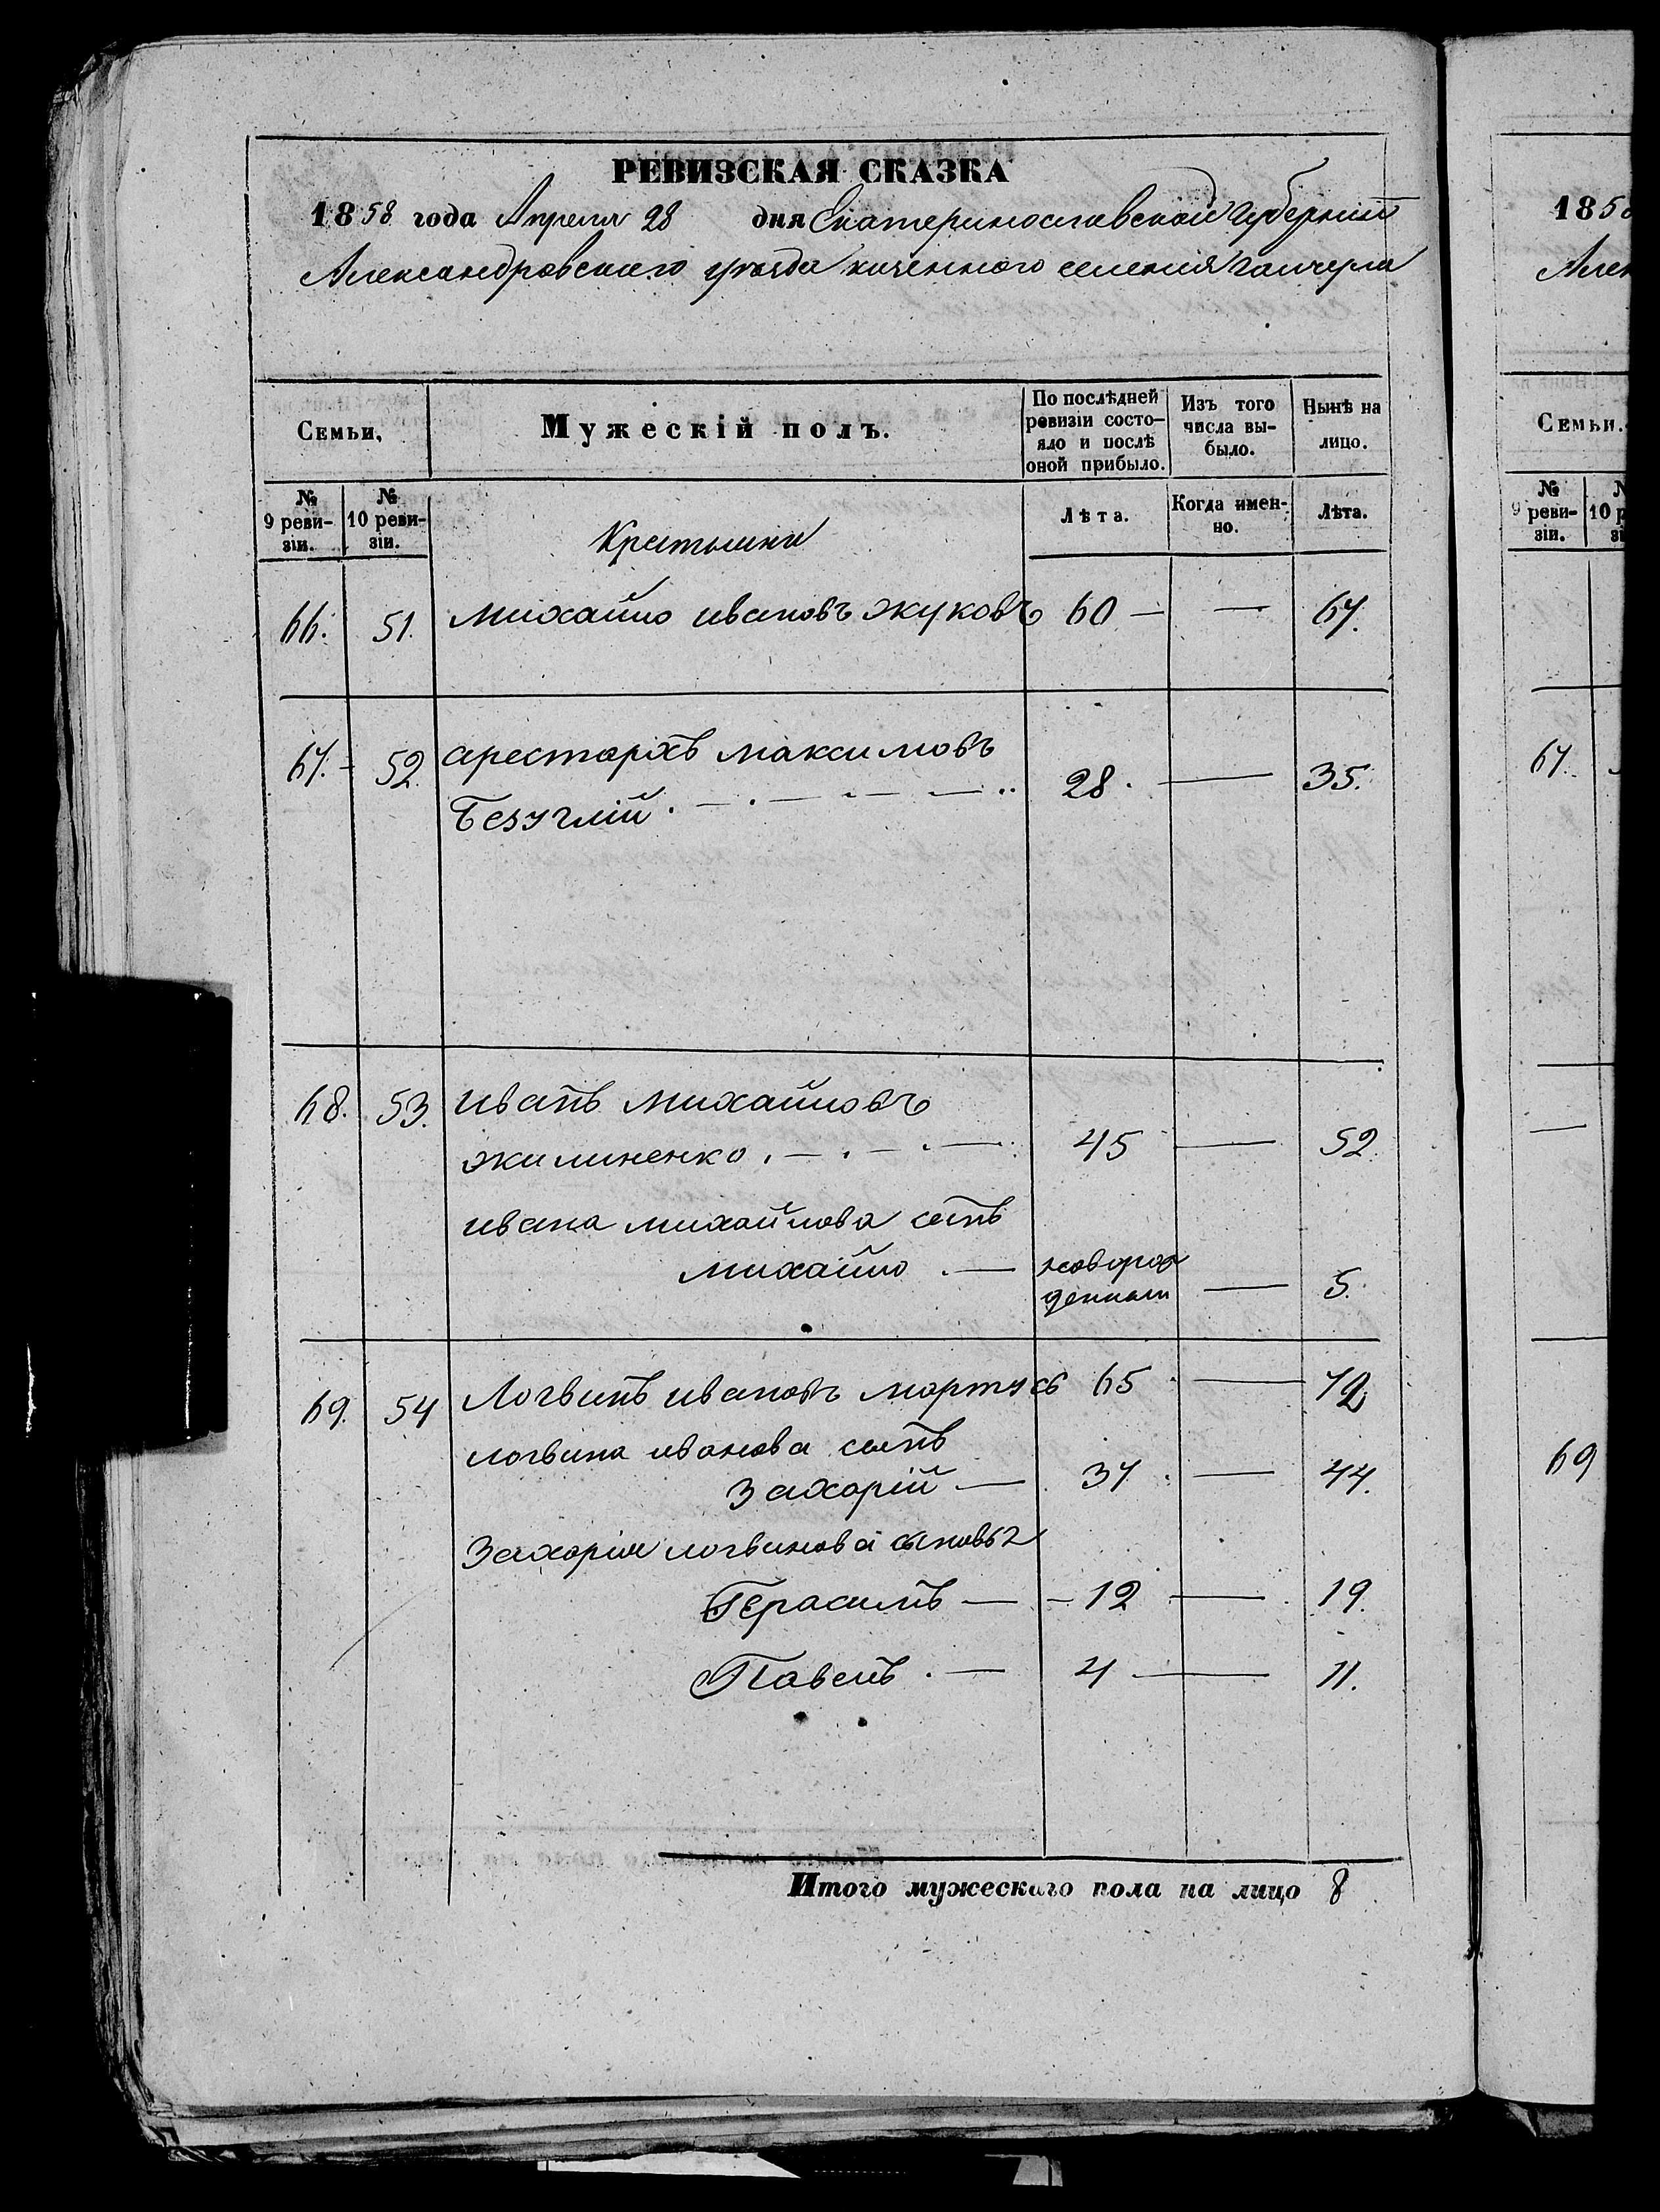 РЕВИЗСКАЯ СКАЗКА
1858 года Апреля 28 дня Екатеринославской Губернии
Александровскаго уѣзда казенного селения Гайчула
Семьи,
Мужескій полъ.
По послѣдней ревизіи состо-
яло и послѣ
оной прибыло.
Изъ того
числа вы-
было.
Нынѣ на
лицо.
№
9 реви-
зіи.
№
10 реви-
зіи.
Крестьяни
Лѣта.
Когда имен-
но.
Лѣта.
66. 51. михайло ивановъ жуковъ 60 — — 67.
67. - 52. арестархъ максимовъ
Безуглій 28. — 35.
68. 53. иванъ михайловъ
жилиненко 45 — 52.
ивана михайлова сынъ
михайло — новорож
денный — 5.
69. 54 Логвинъ ивановъ мортусъ 65 — 72
логвина иванова сынъ
Захорій — 37. — 44.
Захория логвинова сыновья
Герасимъ — - 12 — 19.
Павелъ. — 4 — 11.
Итого мужескаго пола на лицо 8
185
Алек
Семьи.
№
9 реви-
зіи.
67.
69